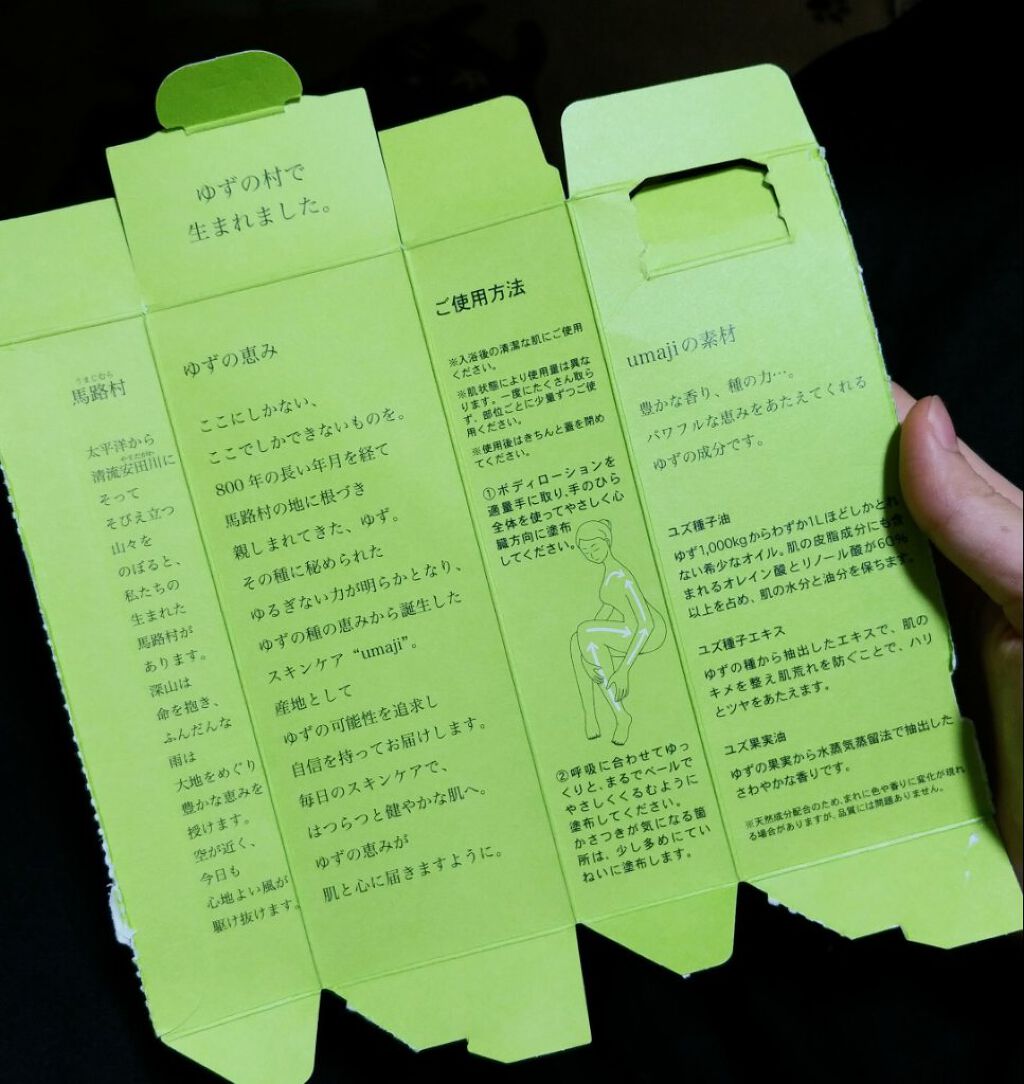 ゆずの村で
生まれました。
うまじむら
馬路村
太平洋から
やすだがわ
清流安田川に
そって
そびえ立つ
山々を
のぼると、
私たちの
生まれた
馬路村が
あります。
深山は
命を抱き、
ふんだんな
雨は
大地をめぐり
豊かな恵みを
授けます。
空が近く、
今日も
心地よい風が
駆け抜けます。
ゆずの恵み
ここにしかない、
ここでしかできないものを。
800年の長い年月を経て
馬路村の地に根づき
親しまれてきた、ゆず。
その種に秘められた
ゆるぎない力が明らかとなり、
ゆずの種の恵みから誕生した
スキンケア“umaji”。
産地として
ゆずの可能性を追求し
自信を持ってお届けします。
毎日のスキンケアで、
はつらつと健やかな肌へ。
ゆずの恵みが
肌と心に届きますように。
ご使用方法
※入浴後の清潔な肌にご使用
ください。
※肌状態により使用量は異な
ります。一度にたくさん取ら
ず、部位ごとに少量ずつご使
用ください。
※使用後はきちんと蓋を閉め
てください。
①ボディローションを
適量手に取り、手のひら
全体を使ってやさしく心
臓方向に塗布
してください。
②呼吸に合わせてゆっ
くりと、まるでベールで
やさしくくるむように
塗布してください。
かさつきが気になる箇
所は、少し多めにてい
ねいに塗布します。
umajiの素材
豊かな香り、種の力…。
パワフルな恵みをあたえてくれる
ゆずの成分です。
ユズ種子油
ゆず1,000kgからわずか1Lほどしかとれ
ない希少なオイル。肌の皮脂成分にも含
まれるオレイン酸とリノール酸が60%
以上を占め、肌の水分と油分を保ちます。
ユズ種子エキス
ゆずの種から抽出したエキスで、肌の
キメを整え肌荒れを防ぐことで、ハリ
とツヤをあたえます。
ユズ果実油
ゆずの果実から水蒸気蒸留法で抽出した
さわやかな香りです。
※天然成分配合のため、まれに色や香りに変化が現れ
る場合がありますが、品質には問題ありません。